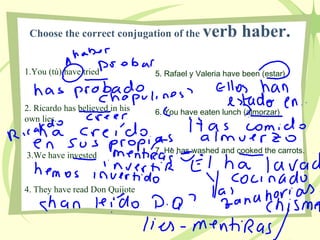 Choose the correct conjugation of the verb haber.
haber
probar
1.You (tú) have tried
has probado
chapulines
2. Ricardo has believed in his
own lies.
creer
Ricardo
ha creído
en sus propias
mentiras
3.We have invested
invertir
hemos invertido
4. They have read Don Quijote
han leído D.Q.
5. Rafael y Valeria have been (estar)
Ellos han
estado en..
6. You have eaten lunch (almorzar)
Has comido
almuerzo
7. He has washed and cooked the carrots.
Él ha lavado
y cocinado
las
zanahorias
chisme
lies - mentiras